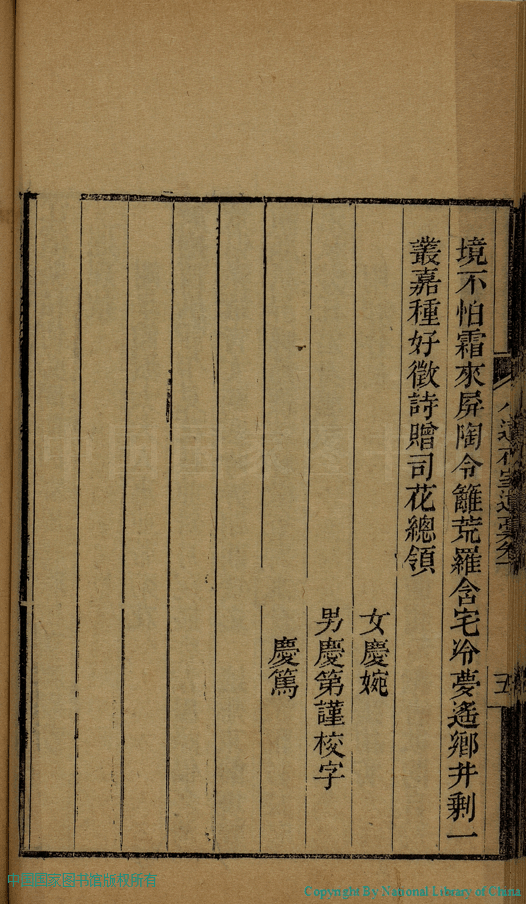 境不怕霜來屏陶令籬荒羅含宅冷夢遙鄉井剩一
叢嘉種好徵詩贈司花總領
女慶婉
男慶第謹校字
慶篤
五
中国国家图书馆版权所有
Copyright By National Library of China